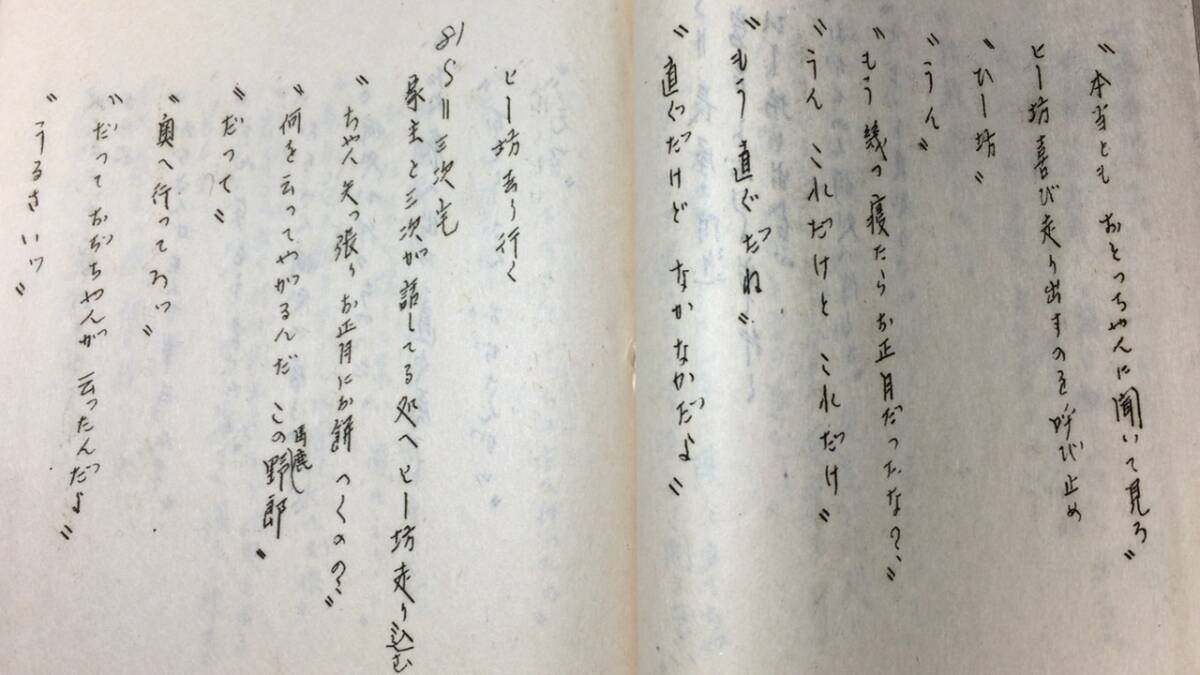 〝本当とも おとっちゃんに聞いて見ろ〟
ヒー坊喜び走り出すのを呼び止め
〝ひー坊〟
〝うん〟
〝もう幾つ寝たらお正月だったな？〟
〝うん これだけと これだけ〟
〝もう直ぐだね〟
〝直ぐだけど なかなかだよ〟
ヒー坊去り行く
81 S＝三次宅
家主と三次が話してる処へヒー坊走り込む
〝ちゃん矢っ張りお正月にお餅つくの？〟
〝何を云ってやがるんだ この馬鹿野郎〟
〝だって〟
〝奥へ行ってろッ〟
〝だっておぢちゃんが 云ったんだよ〟
〝うるさいッ〟